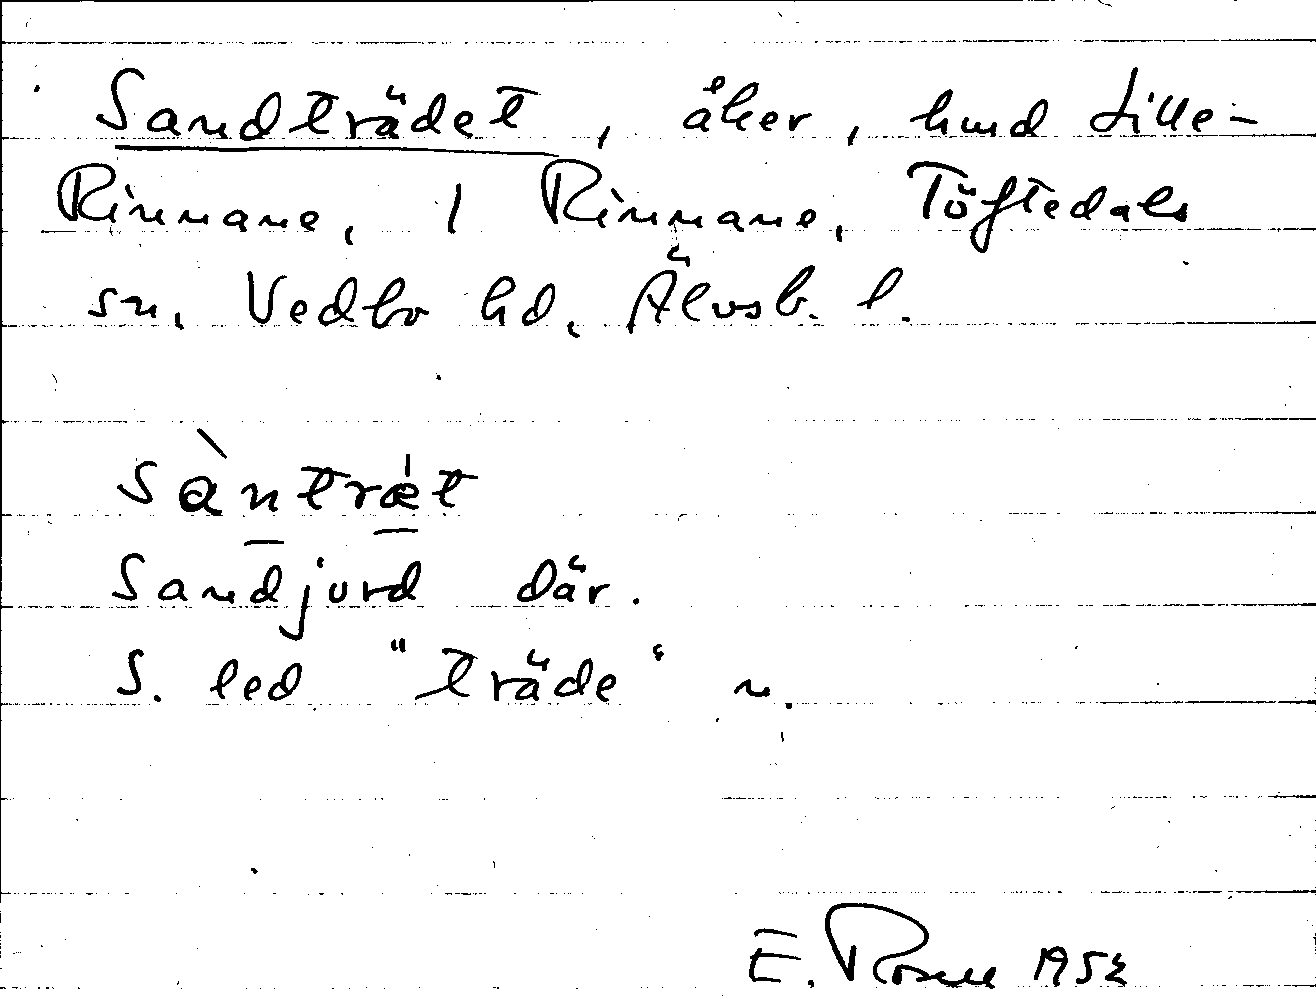 Sandträdet, åker, hmd Lille-
Rinnane, 1 Rinnane, Töftedals
sn, Vedbo hd, Älvsb. l.
sàntrǽt
Sandjord där.
S. led "träde" n.
E. Rosell 195